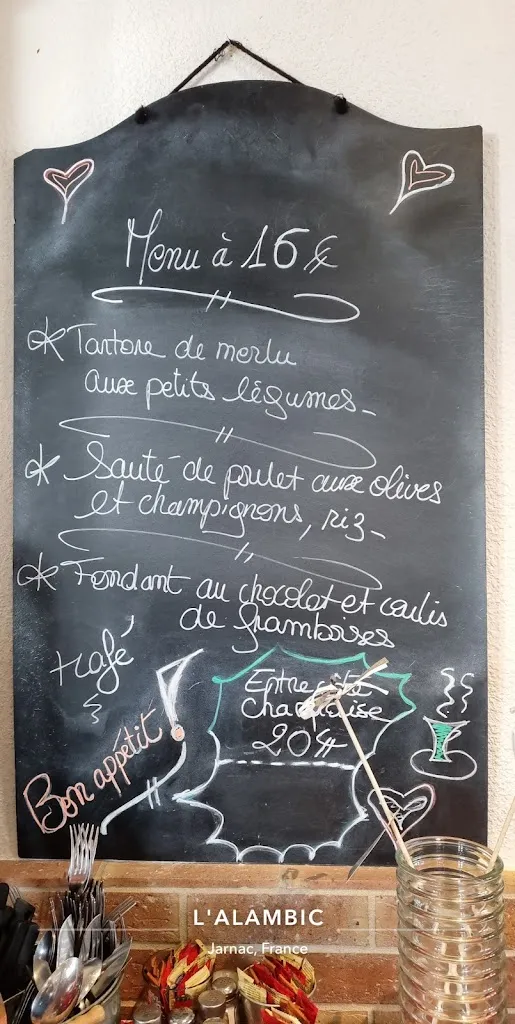 Menu à 16 €
Tartare de merlu
aux petits légumes_
Sauté de poulet aux olives
et champignons, riz_
Fondant au chocolat et coulis
de framboises
+café
Bon appétit
Entrecôte
20€
L'ALAMBIC
Jarnac, France